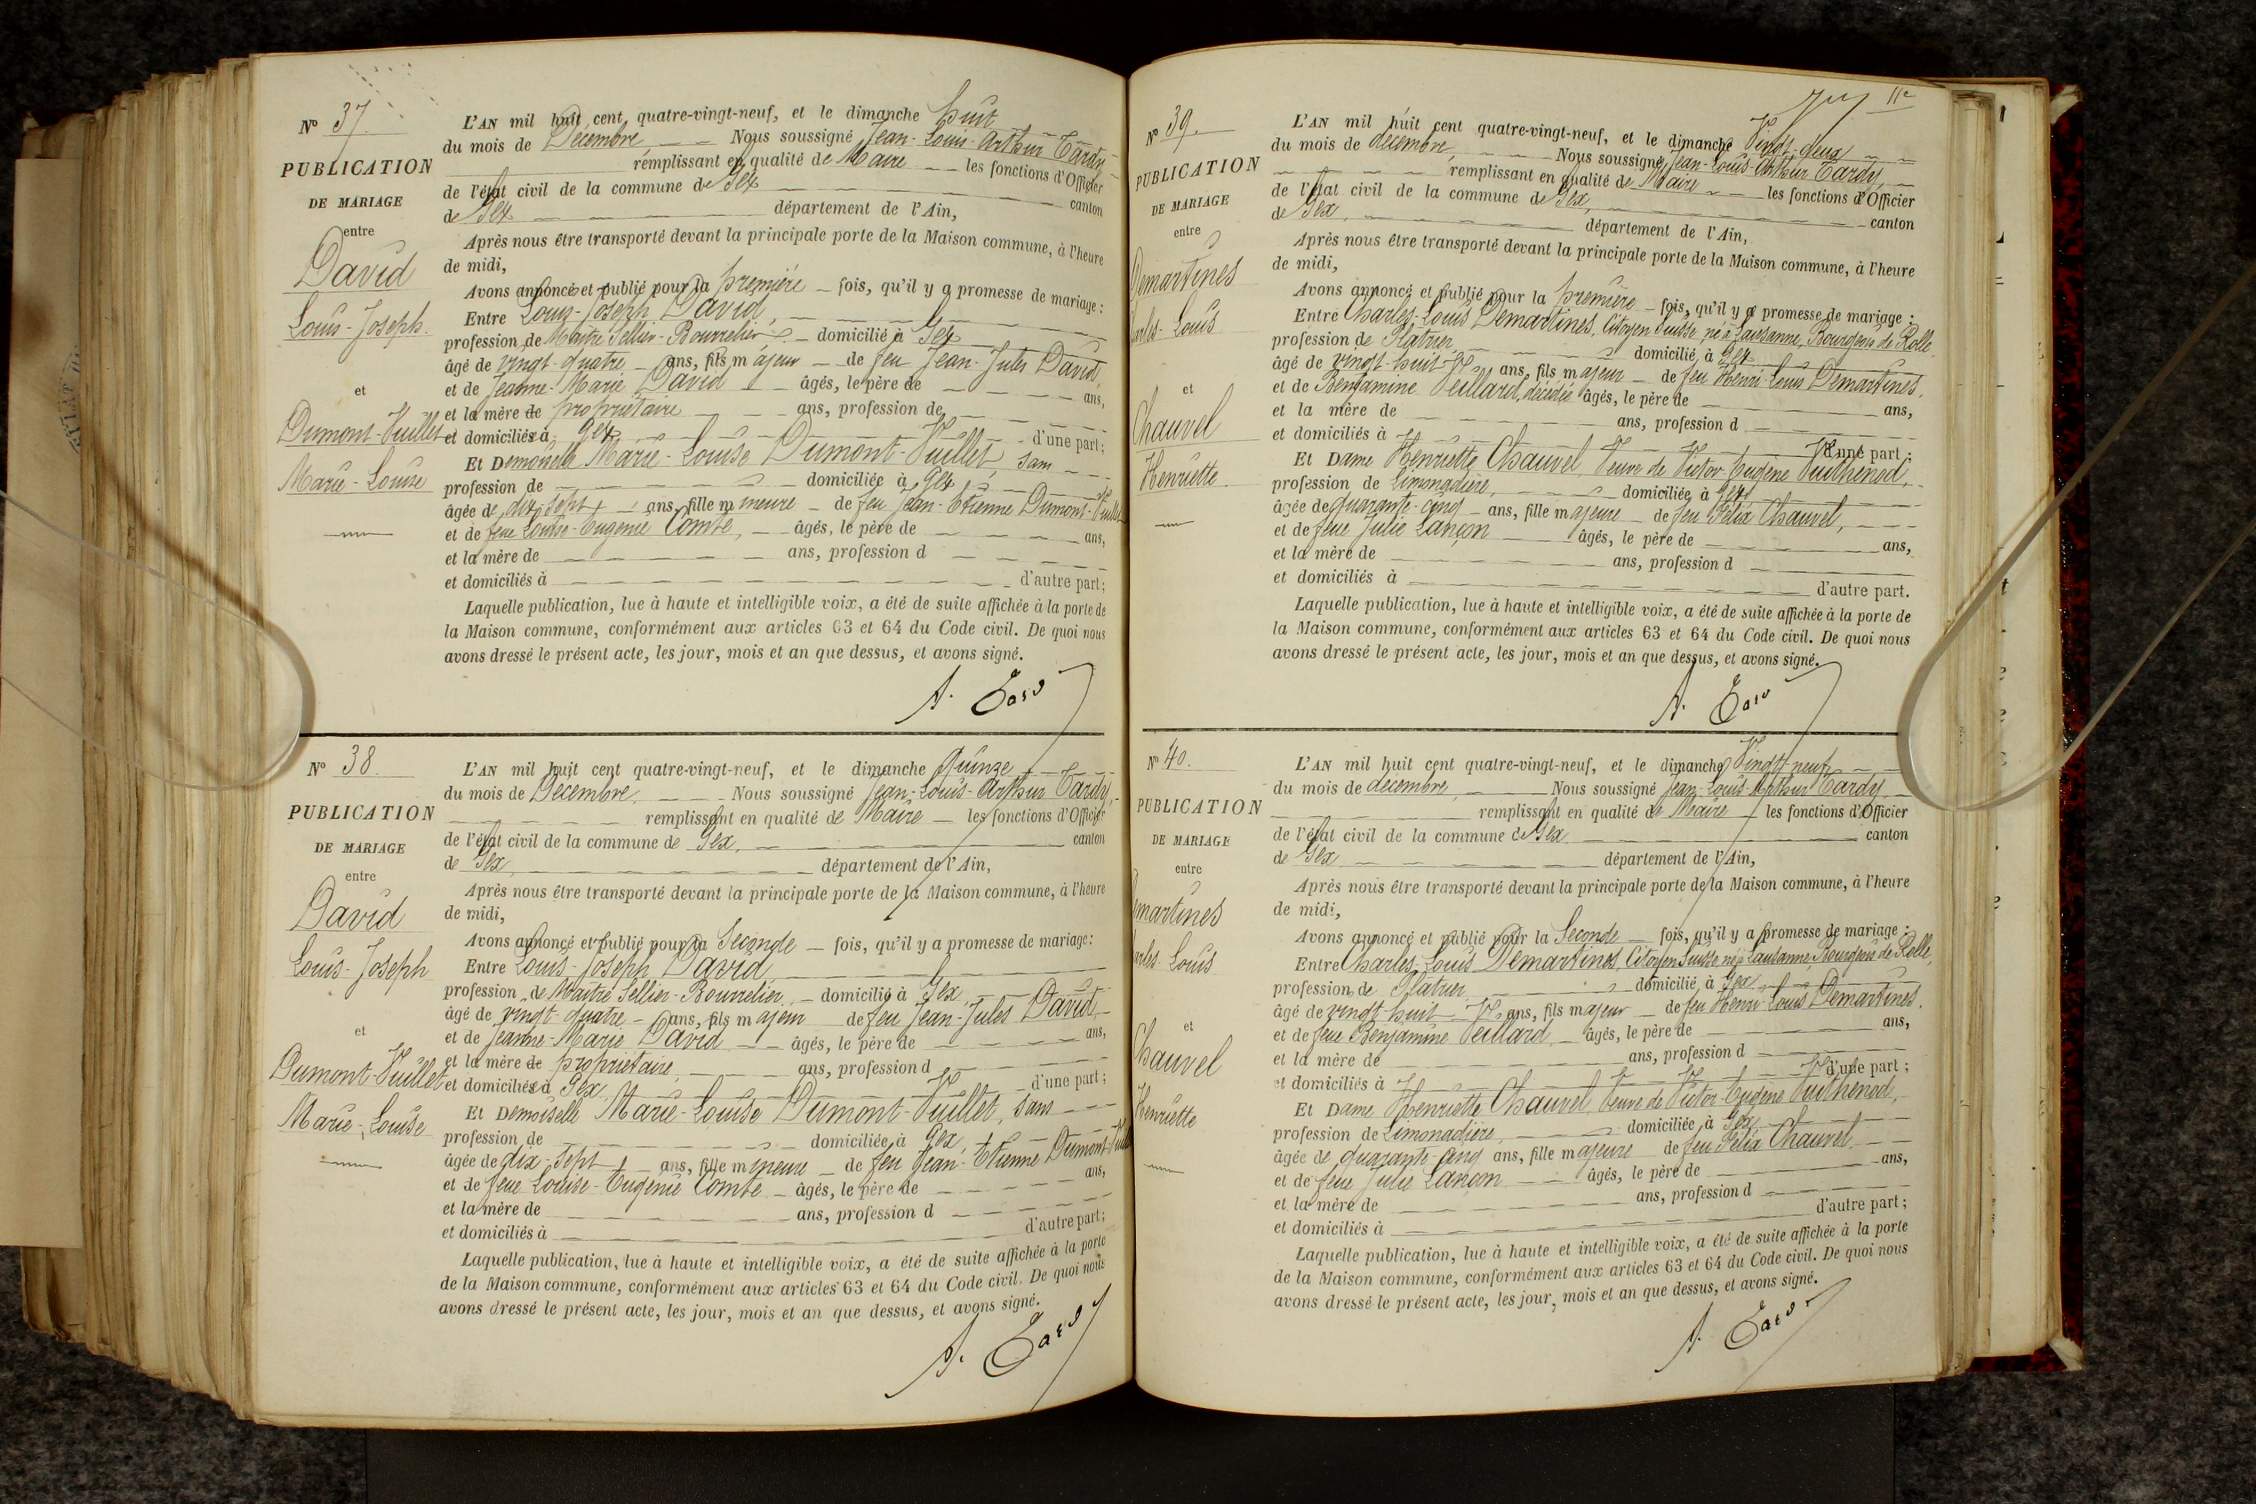 N° 37.
PUBLICATION
DE MARIAGE
entre
David
Louis-Joseph.
et
Dumont-Vuillet
Marie-Louise
L'AN mil huit cent quatre-vingt-neuf, et le dimanche huit
du mois de Décembre, Nous soussigné Jean-Louis-Arthur Tardy
remplissant en qualité de Maire les fonctions d'Officier
de l'état civil de la commune de Gex canton
de Gex département de l'Ain,
Après nous être transporté devant la principale porte de la Maison commune, à l'heure
de midi,
Avons annoncé et publié pour la première fois, qu'il y a promesse de mariage :
Entre Louis-Joseph David,
profession de Maître Sellier-Bourrelier domicilié à Gex
âgé de vingt-quatre ans, fils majeur de feu Jean-Jules David,
et de Jeanne-Marie David âgés, le père de ans,
et la mère de propriétaire ans, profession de
et domiciliés à Gex d'une part ;
ET Demoiselle Marie-Louise Dumont-Vuillet, sans
profession de domiciliée à Gex,
âgée de dix-sept ans, fille mineure de feu Jean-Etienne Dumont-Vuillet
et de feue Louise-Eugénie Comte, âgés, le père de ans,
et la mère de ans, profession d
et domiciliés à d'autre part ;
Laquelle publication, lue à haute et intelligible voix, a été de suite affichée à la porte de
la Maison commune, conformément aux articles 63 et 64 du Code civil. De quoi nous
avons dressé le présent acte, les jour, mois et an que dessus, et avons signé.
A. Tardy
N° 38.
PUBLICATION
DE MARIAGE
entre
David
Louis-Joseph
et
Dumont-Vuillet
Marie-Louise
L'AN mil huit cent quatre-vingt-neuf, et le dimanche quinze
du mois de Décembre, Nous soussigné Jean-Louis-Arthur Tardy,
remplissant en qualité de Maire les fonctions d'Officier
de l'état civil de la commune de Gex, canton
de Gex, département de l'Ain,
Après nous être transporté devant la principale porte de la Maison commune, à l'heure
de midi,
Avons annoncé et publié pour la Seconde fois, qu'il y a promesse de mariage :
Entre Louis-Joseph David
profession de Maître Sellier-Bourrelier, domicilié à Gex,
âgé de vingt-quatre ans, fils majeur de feu Jean-Jules David,
et de Jeanne-Marie David âgés, le père de ans,
et la mère de propriétaire, ans, profession d
et domiciliés à Gex, d'une part ;
ET Demoiselle Marie-Louise Dumont-Vuillet, sans
profession de domiciliée à Gex,
âgée de dix-sept ans, fille mineure de feu Jean-Etienne Dumont-Vuillet
et de feue Louise-Eugénie Comte âgés, le père de ans,
et la mère de ans, profession d
et domiciliés à d'autre part ;
Laquelle publication, lue à haute et intelligible voix, a été de suite affichée à la porte
de la Maison commune, conformément aux articles 63 et 64 du Code civil. De quoi nous
avons dressé le présent acte, les jour, mois et an que dessus, et avons signé.
A. Tardy
11e
N° 39.
PUBLICATION
DE MARIAGE
entre
Demartines
arles-Louis
et
Chauvel
Henriette.
L'AN mil huit cent quatre-vingt-neuf, et le dimanche Vingt-deux
du mois de décembre, Nous soussigné Jean-Louis-Arthur Tardy,
remplissant en qualité de Maire les fonctions d'Officier
de l'état civil de la commune de Gex, canton
de Gex, département de l'Ain,
Après nous être transporté devant la principale porte de la Maison commune, à l'heure
de midi,
Avons annoncé et publié pour la première fois, qu'il y a promesse de mariage :
Entre Charles-Louis Demartines, Citoyen Suisse, né à Lausanne, Bourgeois de Rolle
profession de Plâtrier, domicilié à Gex
âgé de vingt-huit ans, fils majeur de feu Henri-Louis Demartines,
et de Benjamine Veillard, décédée âgés, le père de ans,
et la mère de ans, profession d
et domiciliés à d'une part ;
ET DAME Henriette Chauvel Veuve de Victor-Eugène Vuithenod,
profession de Limonadière, domiciliée à Gex
âgée de quarante-cinq ans, fille majeure de feu Félix Chauvel,
et de feue Julie Lançon âgés, le père de ans,
et la mère de ans, profession d
et domiciliés à d'autre part.
Laquelle publication, lue à haute et intelligible voix, a été de suite affichée à la porte de
la Maison commune, conformément aux articles 63 et 64 du Code civil. De quoi nous
avons dressé le présent acte, les jour, mois et an que dessus, et avons signé.
A. Tardy
N° 40.
PUBLICATION
DE MARIAGE
entre
martines
arles-Louis
et
Chauvel
Henriette
L'AN mil huit cent quatre-vingt-neuf, et le dimanche Vingt-neuf
du mois de décembre, Nous soussigné Jean-Louis-Arthur Tardy,
remplissant en qualité de Maire les fonctions d'Officier
de l'état civil de la commune de Gex canton
de Gex département de l'Ain,
Après nous être transporté devant la principale porte de la Maison commune, à l'heure
de midi,
Avons annoncé et publié pour la Seconde fois, qu'il y a promesse de mariage :
Entre Charles-Louis Demartines, Citoyen Suisse, né à Lausanne, Bourgeois de Rolle,
profession de Plâtrier domicilié à Gex
âgé de vingt-huit ans, fils majeur de feu Henri-Louis Demartines.
et de feue Benjamine Veillard, âgés, le père de ans,
et la mère de ans, profession d
et domiciliés à d'une part ;
ET DAME Henriette Chauvel, Veuve de Victor-Eugène Vuithenod,
profession de Limonadière, domiciliée à Gex,
âgée de quarante-cinq ans, fille majeure de feu Félix Chauvel,
et de feue Julie Lançon âgés, le père de ans,
et la mère de ans, profession d
et domiciliés à d'autre part ;
Laquelle publication, lue à haute et intelligible voix, a été de suite affichée à la porte
de la Maison commune, conformément aux articles 63 et 64 du Code civil. De quoi nous
avons dressé le présent acte, les jour, mois et an que dessus, et avons signé.
A. Tardy